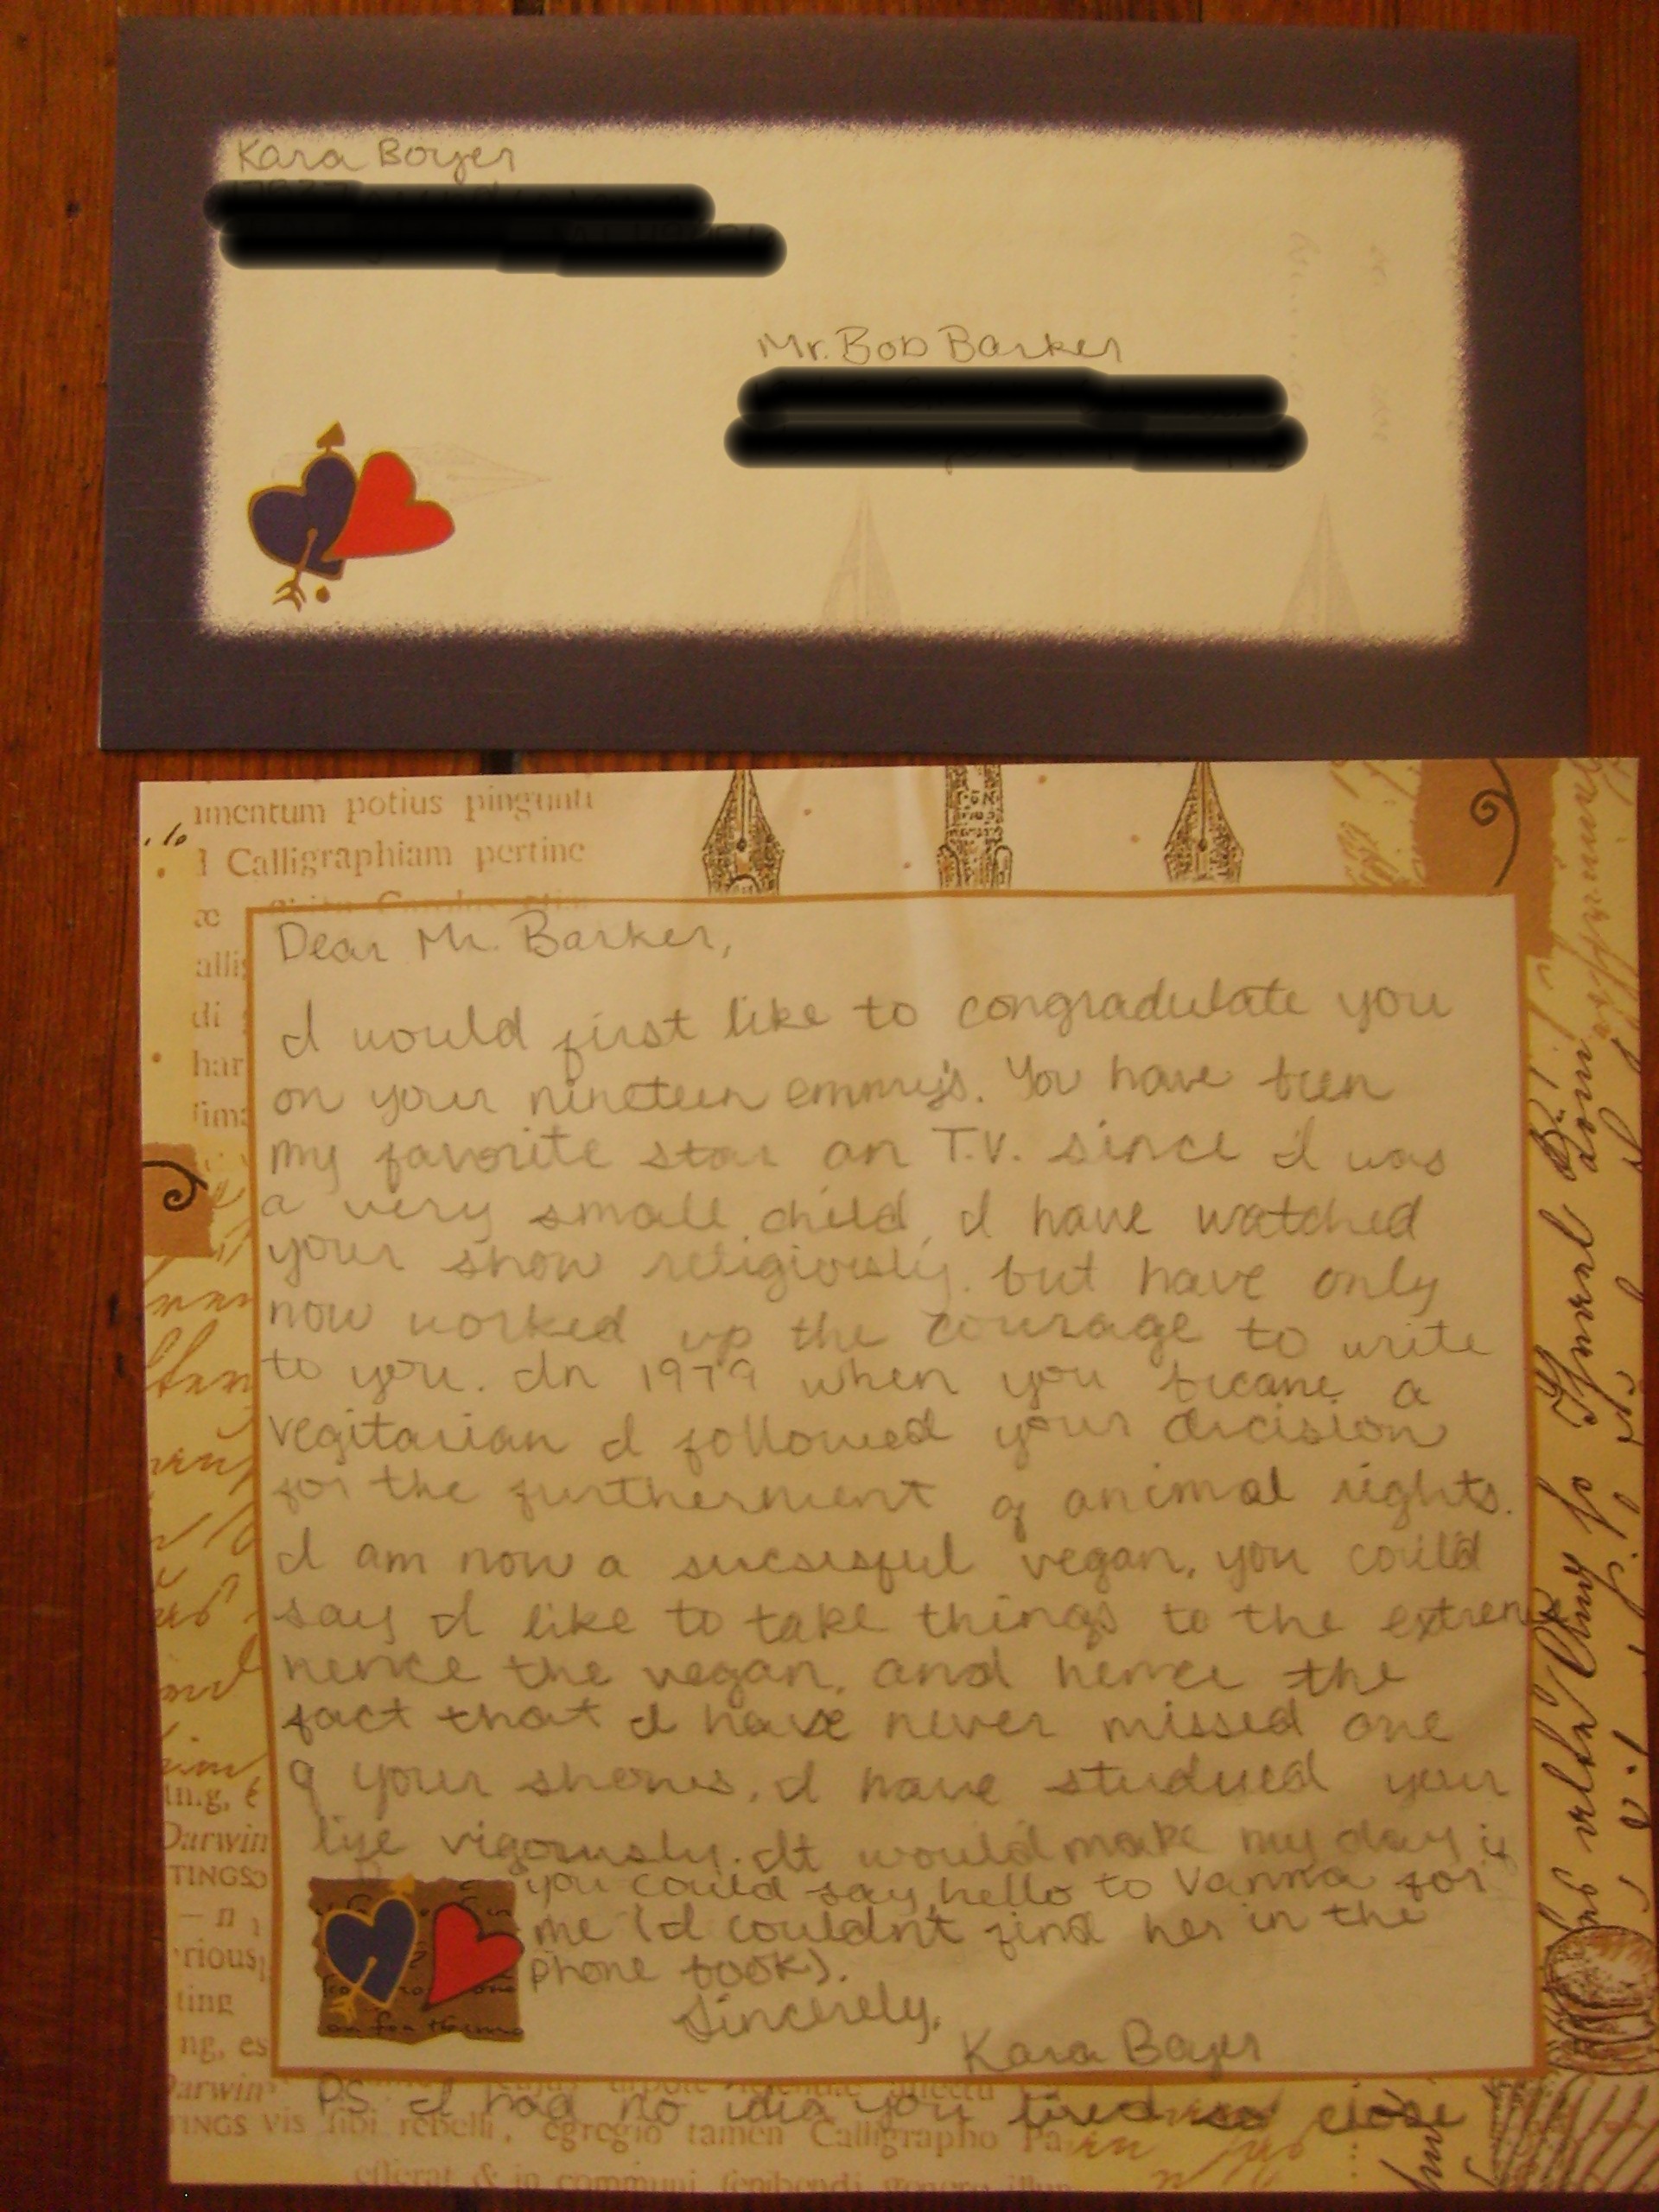 Kara Boyer
Mr. Bob Barker
imentum potius pingunti
l Calligraphiam pertine
æ
alli
di
har
Dear Mr. Barker,
I would first like to congradulate you
on your nineteen emmy's. You have been
my favorite star on T.V. since I was
a very small child, I have watched
your show religiously, but have only
now worked up the courage to write
to you. In 1979 when you became a
vegitarian I followed your decision
for the furtherment of animal rights.
I am now a sucsesful vegan, you could
say I like to take things to the extreme
hence the vegan, and hence the
fact that I have never missed one
of your shows. I have studued your
life vigorusly. It would make my day if
you could say hello to Vanna for
me (I couldn't find her in the
phone book).
Sincerely,
Kara Boyer
PS I had no idea you lived so close
Darwin
TINGS
rious
ting
ng, es
arwin
TINGS vis sibi rebelli, egregio tamen Calligrapho Pa
efferat & in communi scribendi genere illus